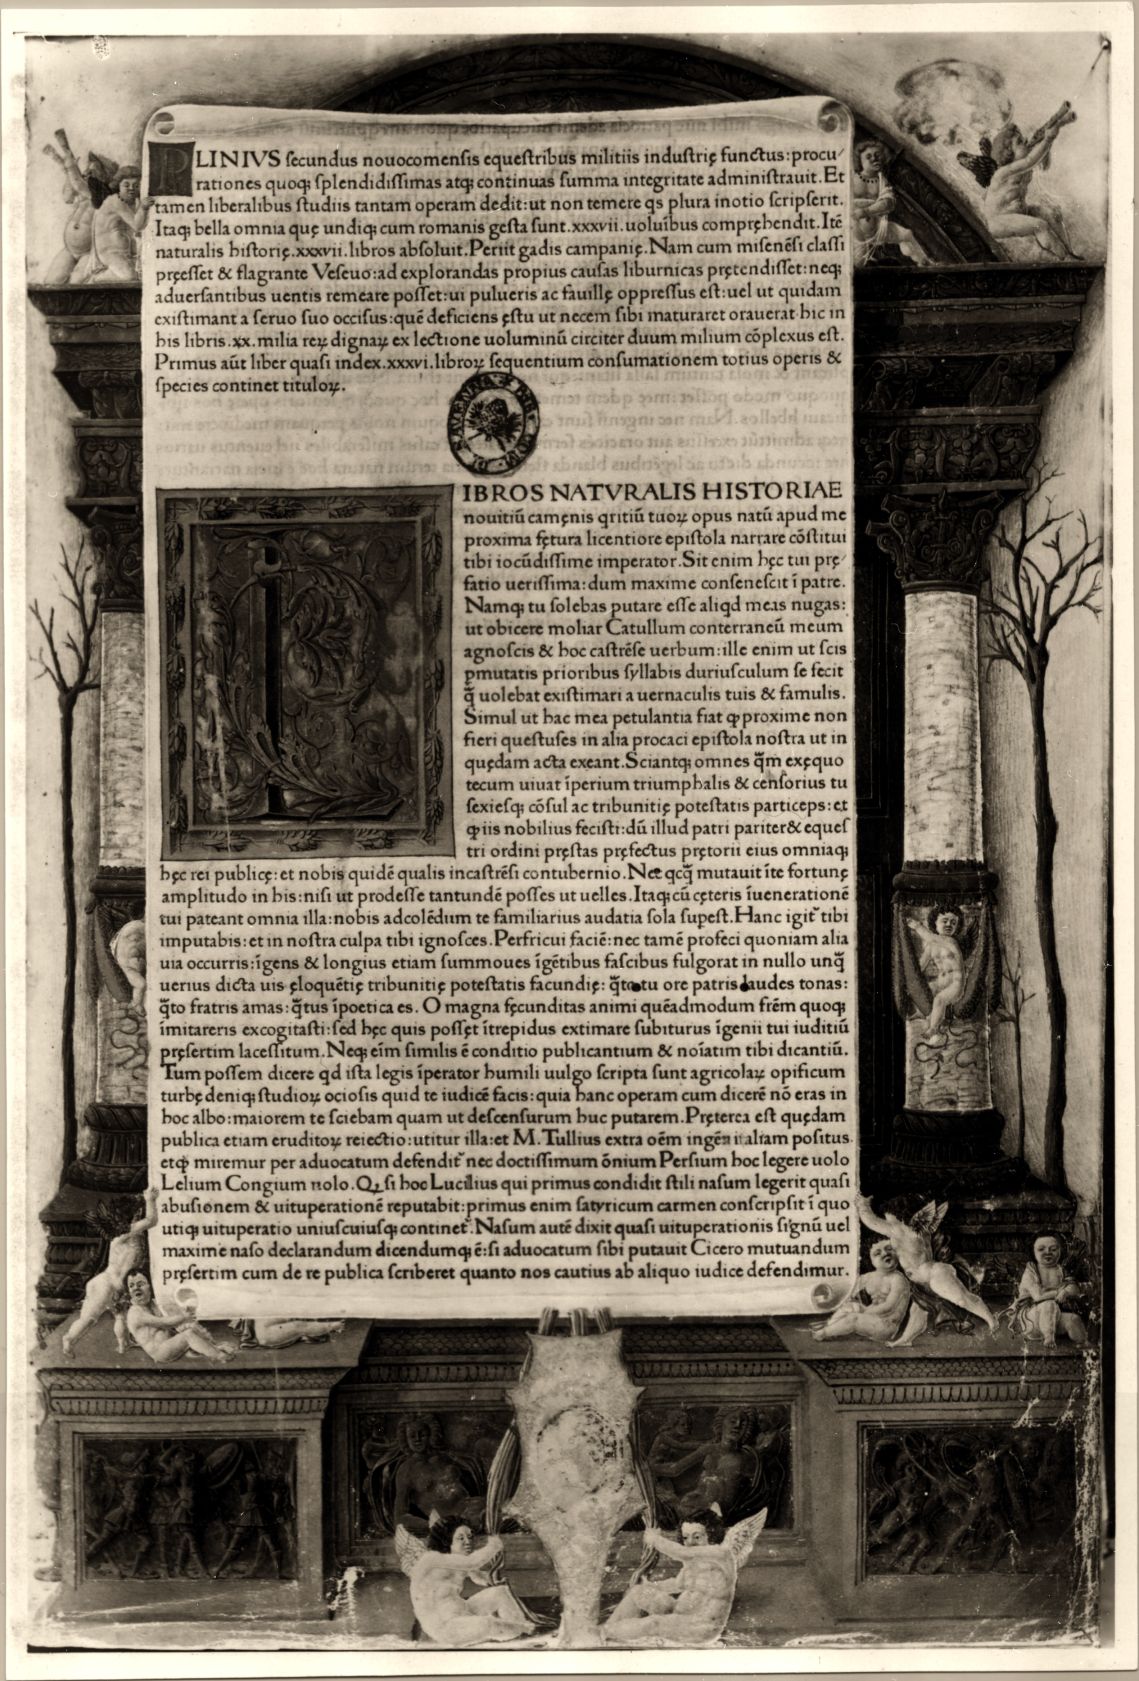 PLINIVS secundus nouocomensis equestribus militiis industrię functus:procu/
rationes quoq; splendidissimas atq; continuas summa integritate administrauit.Et
tamen liberalibus studiis tantam operam dedit:ut non temere qs plura inotio scripserit.
Itaq; bella omnia quę undiq; cum romanis gesta sunt.xxxvii.uoluībus compręhendit.Itē
naturalis historię.xxxvii.libros absoluit.Periit gadis campanię.Nam cum misenēsi classi
pręesset & flagrante Veseuo:ad explorandas propius causas liburnicas prętendisset:neq;
aduersantibus uentis remeare posset:ui pulueris ac fauillę oppressus est:uel ut quidam
existimant a seruo suo occisus:quē deficiens ęstu ut necem sibi maturaret orauerat hic in
his libris.xx.milia reꝝ dignaꝝ ex lectione uoluminū circiter duum milium cōplexus est.
Primus aūt liber quasi index.xxxvi.libroꝝ sequentium consumationem totius operis &
species continet tituloꝝ.
LIBROS NATVRALIS HISTORIAE
nouitiū camęnis qritiū tuoꝝ opus natū apud me
proxima fętura licentiore epistola narrare cōstitui
tibi iocūdissime imperator.Sit enim hęc tui prę/
fatio uerissima:dum maxime consenescit ī patre.
Namq; tu solebas putare esse aliqd meas nugas:
ut obicere moliar Catullum conterraneū meum
agnoscis & hoc castrēse uerbum:ille enim ut scis
ꝑmutatis prioribus syllabis duriusculum se fecit
q̄ uolebat existimari a uernaculis tuis & famulis.
Simul ut hac mea petulantia fiat ꝙ proxime non
fieri questuses in alia procaci epistola nostra ut in
quędam acta exeant.Sciantq; omnes q̄m exęquo
tecum uiuat īperium triumphalis & censorius tu
sexiesq; cōsul ac tribunitię potestatis particeps:et
ꝙ iis nobilius fecisti:dū illud patri pariter& eques
tri ordini pręstas pręfectus prętorii eius omniaq;
hęc rei publicę:et nobis quidē qualis incastrēsi contubernio.Nec qcq̄ mutauit īte fortunę
amplitudo in his:nisi ut prodesse tantundē posses ut uelles.Itaq; cū cęteris īuenerationē
tui pateant omnia illa:nobis adcolēdum te familiarius audatia sola supest.Hanc igit̄ tibi
imputabis:et in nostra culpa tibi ignosces.Perfricui faciē:nec tamē profeci quoniam alia
uia occurris:īgens & longius etiam summoues īgētibus fascibus fulgorat in nullo unq̄
uerius dicta uis ęloquētię tribunitię potestatis facundię: q̄to tu ore patris laudes tonas:
q̄to fratris amas:q̄tus īpoetica es. O magna fęcunditas animi quēadmodum frēm quoq;
īmitareris excogitasti:sed hęc quis possęt ītrepidus extimare subiturus īgenii tui iuditiū
pręsertim lacessitum.Neq; eīm similis ē conditio publicantium & noīatim tibi dicantiū.
Tum possem dicere qd ista legis īperator humili uulgo scripta sunt agricolaꝝ opificum
turbę deniq; studioꝝ ociosis quid te iudicē facis:quia hanc operam cum dicerē nō eras in
hoc albo:maiorem te sciebam quam ut descensurum huc putarem.Pręterea est quędam
publica etiam eruditoꝝ reiectio:utitur illa:et M.Tullius extra oēm ingēii aliam positus
etꝙ miremur per aduocatum defendit̄ nec doctissimum ōnium Persium hoc legere uolo
Lelium Congium nolo.Q; si hoc Lucilius qui primus condidit stili nasum legerit quasi
abusionem & uituperationē reputabit:primus enim satyricum carmen conscripsit ī quo
utiq; uituperatio uniuscuiusq; continet̄.Nasum autē dixit quasi uituperationis signū uel
maxime naso declarandum dicendumq; ē:si aduocatum sibi putauit Cicero mutuandum
pręsertim cum de re publica scriberet quanto nos cautius ab aliquo iudice defendimur.